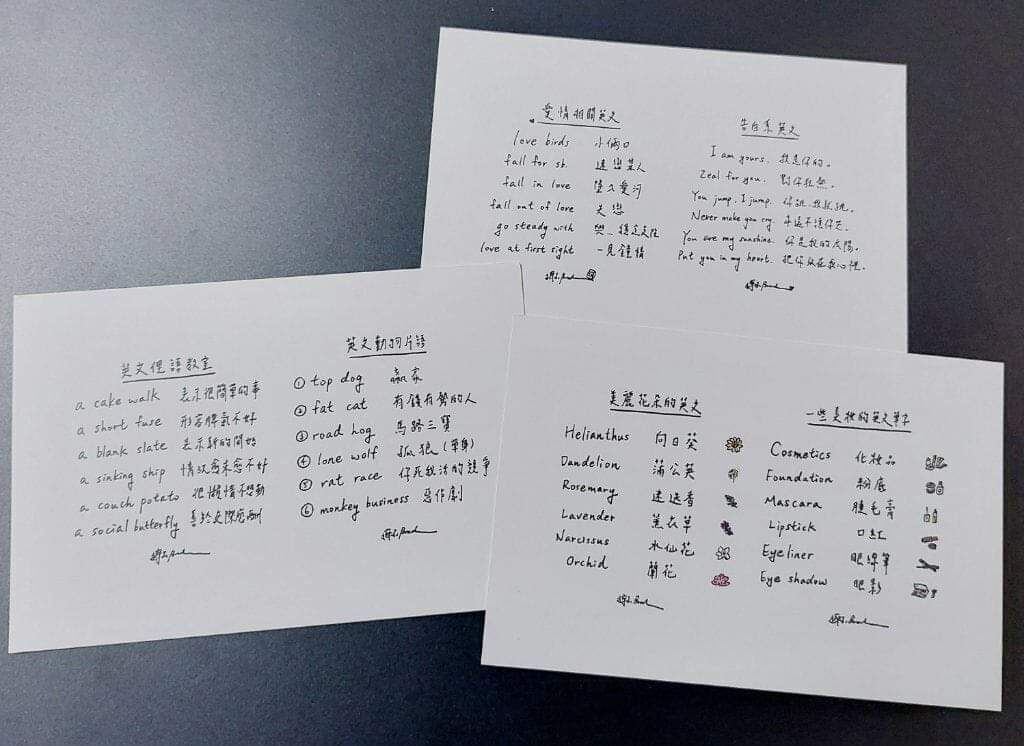 愛情相關英文
love birds 小倆口
fall for sb. 迷戀某人
fall in love 墜入愛河
fall out of love 失戀
go steady with 與…穩定交往
love at first sight 一見鍾情
告白系英文
I am yours. 我是你的。
Zeal for you. 對你狂熱。
You jump, I jump. 你跳,我就跳。
Never make you cry. 永遠不讓你哭。
You are my sunshine. 你是我的太陽。
Put you in my heart. 把你放在我心裡。
英文俚語教室
a cake walk 表示很簡單的事
a short fuse 形容脾氣不好
a blank slate 表示新的開始
a sinking ship 情況愈來愈不好
a couch potato 很懶惰不想動
a social butterfly 善於交際應酬
英文動物片語
① top dog 贏家
② fat cat 有錢有勢的人
③ road hog 馬路三寶
④ lone wolf 孤狼(單身)
⑤ rat race 你死我活的競爭
⑥ monkey business 惡作劇
美麗花朵的英文
Helianthus 向日葵
Dandelion 蒲公英
Rosemary 迷迭香
Lavender 薰衣草
Narcissus 水仙花
Orchid 蘭花
一些美妝的英文單字
Cosmetics 化妝品
Foundation 粉底
Mascara 睫毛膏
Lipstick 口紅
Eyeliner 眼線筆
Eye shadow 眼影